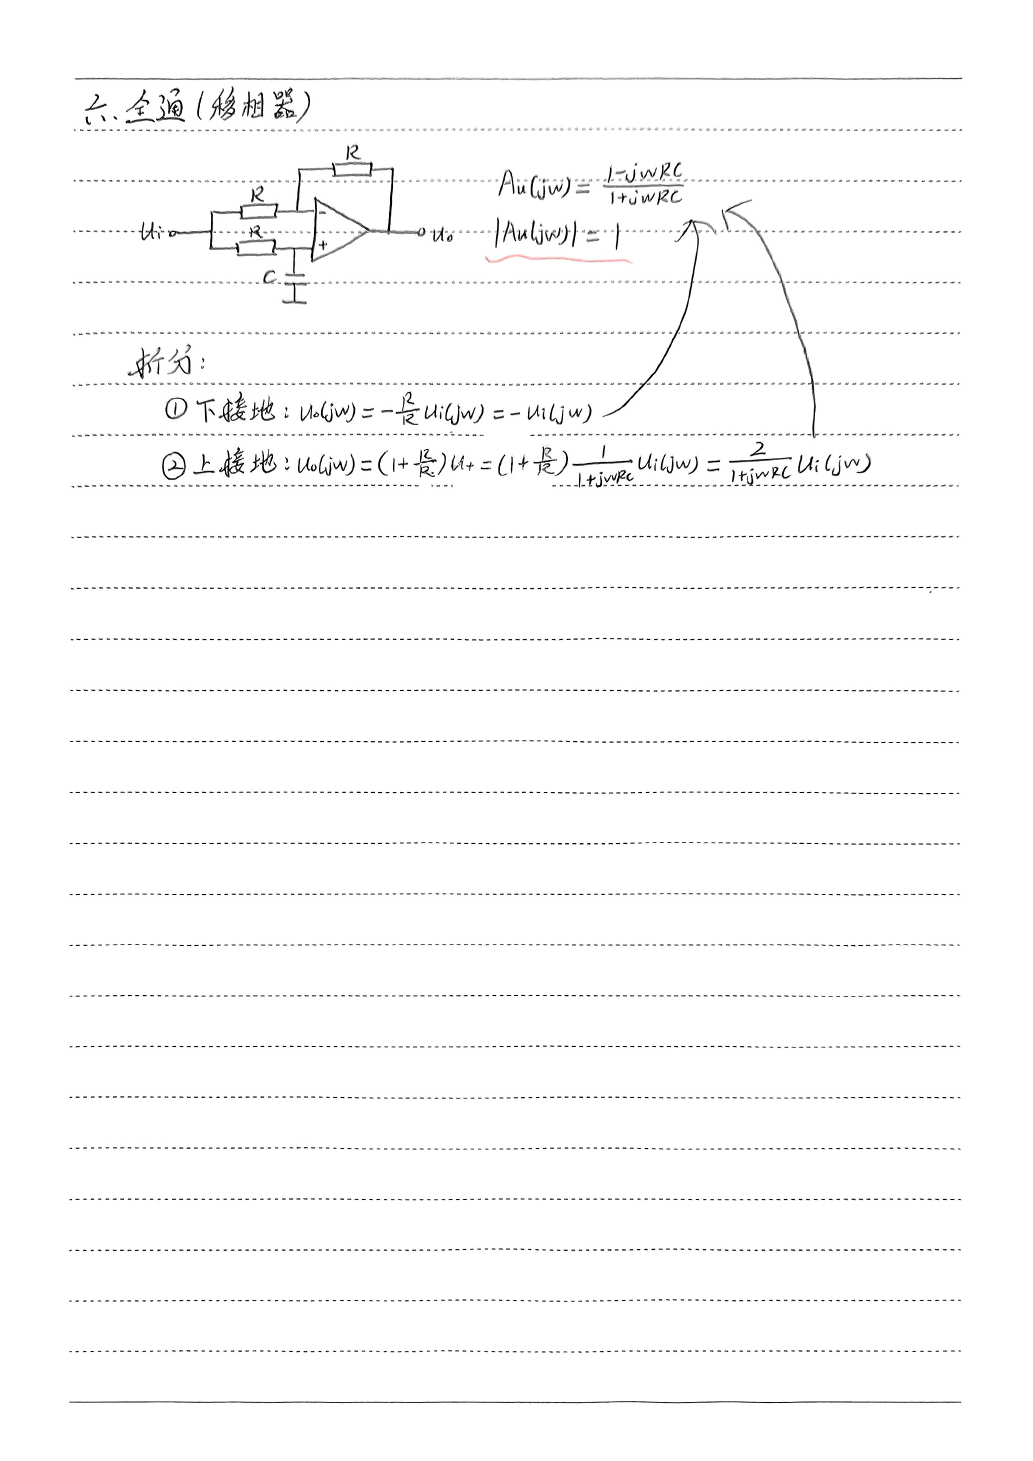 六、全通(移相器)
R
R
Ui
R
C
-
+
Uo
Au(jw) = \frac{1-jwRC}{1+jwRC}
|Au(jw)| = 1
折分:
① 下接地: Uo(jw) = -\frac{R}{R}Ui(jw) = -Ui(jw)
② 上接地: Uo(jw) = (1+\frac{R}{R})U+ = (1+\frac{R}{R})\frac{1}{1+jwRC}Ui(jw) = \frac{2}{1+jwRC}Ui(jw)